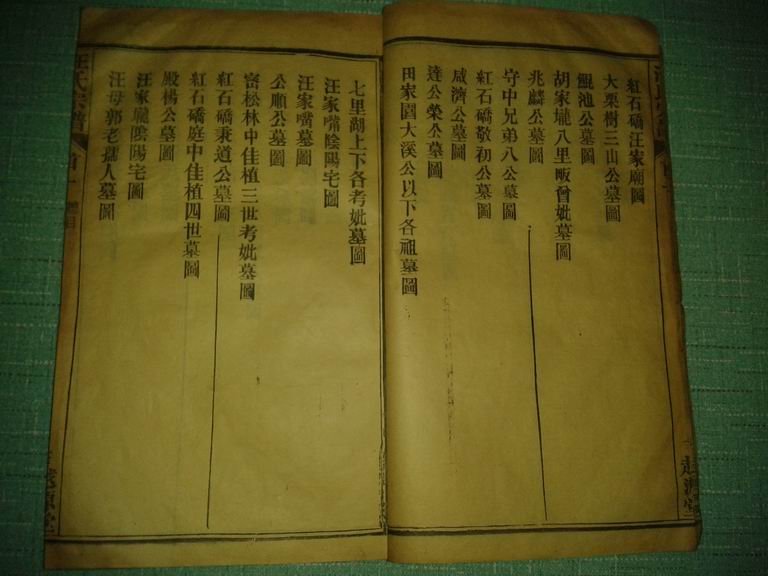 紅石磡汪家廟圖
大栗樹三山公墓圖
鯤池公墓圖
胡家壠八里畈曾妣墓圖
兆麟公墓圖
守中兄弟八公墓圖
紅石磡敬初公墓圖
咸濟公墓圖
達公榮公墓圖
田家園大溪公以下各祖墓圖
七里湖上下各考妣墓圖
汪家嘴陰陽宅圖
汪家嘴墓圖
公順公墓圖
密松林中佳植三世考妣墓圖
紅石磡秉道公墓圖
紅石磡庭中佳植四世墓圖
殿楊公墓圖
汪家壠陰陽宅圖
汪母郭老孺人墓圖
汪氏宗譜
首一